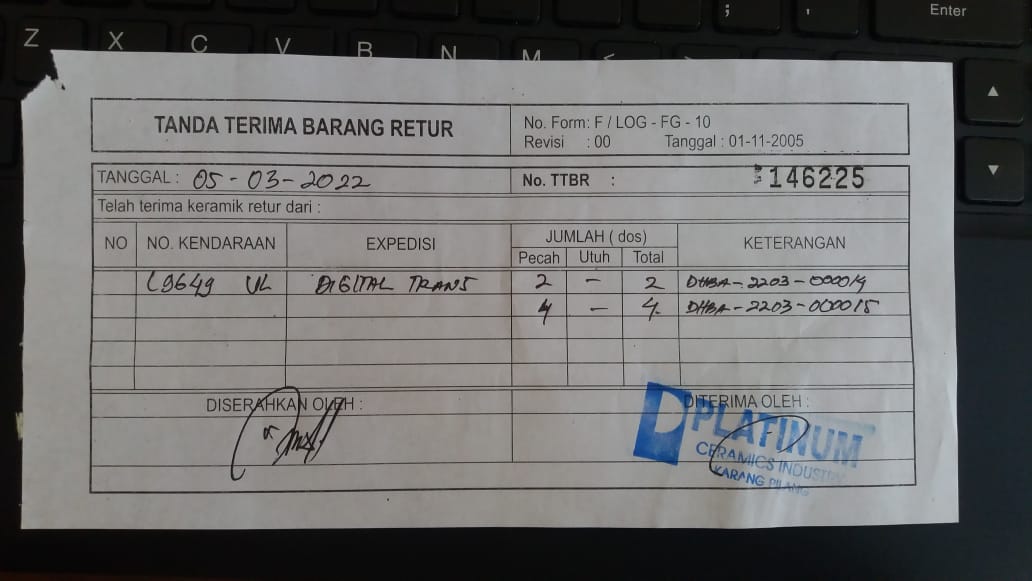 Z X C V B N M < > ; ' Enter
TANDA TERIMA BARANG RETUR
No. Form: F / LOG - FG - 10
Revisi : 00 Tanggal : 01-11-2005
TANGGAL : 05 - 03 - 2022
No. TTBR : 146225
Telah terima keramik retur dari :
NO NO. KENDARAAN EXPEDISI JUMLAH ( dos) KETERANGAN
Pecah Utuh Total
L9649 UL DIGITAL TRANS 2 - 2 DHBA - 2203 - 000014
4 - 4 DHBA - 2203 - 000015
DISERAHKAN OLEH :
DITERIMA OLEH :
PLATINUM
CERAMICS INDUSTRY
KARANG PILANG